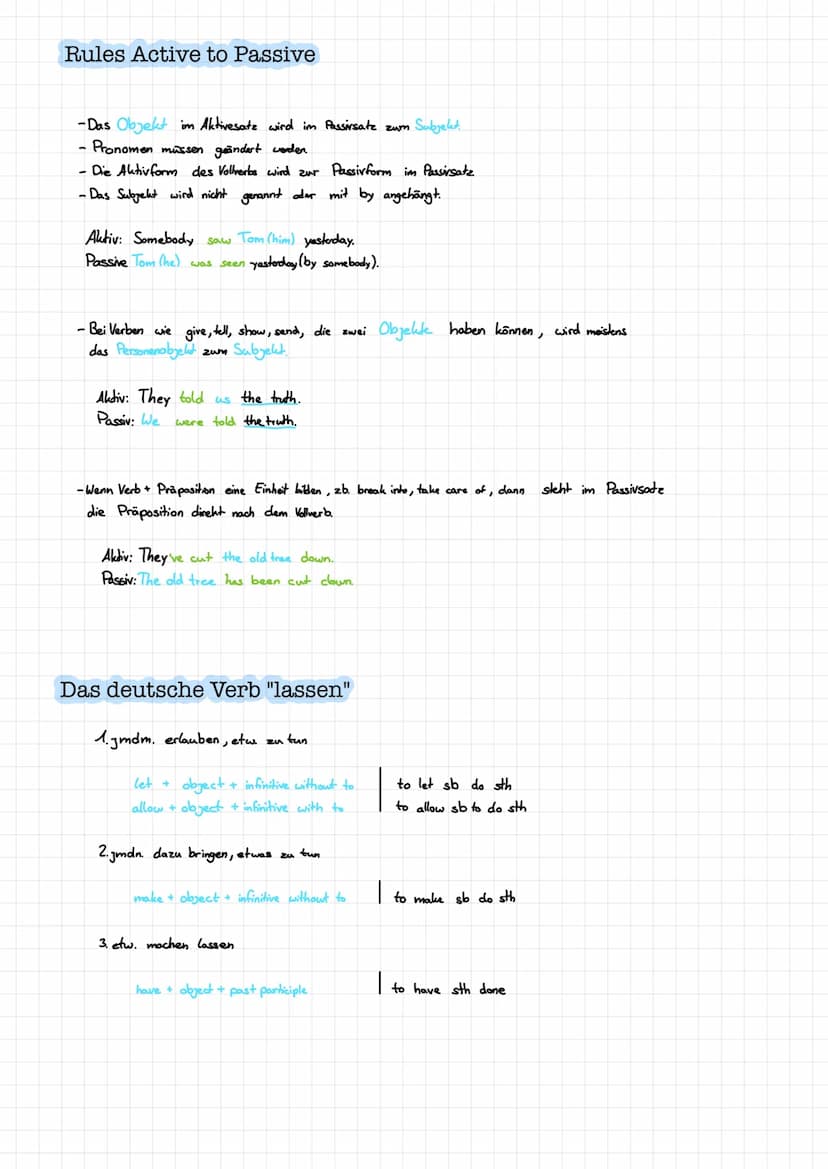 Rules Active to Passive
- Das Objekt im Aktivesatz wird im Passivsatz zum Subjekt.
- Pronomen müssen geändert werden
- Die Aktivform des Vollverbs wird zur Passivform im Passivsatz
- Das Subjekt wird nicht genannt oder mit by angehängt.
Aktiv: Somebody saw Tom (him) yesterday.
Passive Tom (he) was seen yesterday (by somebody).
- Bei Verben wie give, tell, show, send, die zwei Objekte haben können, wird meistens
das Personenobjekt zum Subjekt.
Aktiv: They told us the truth.
Passiv: We were told the truth.
- Wenn Verb + Präposition eine Einheit bilden, zb. break into, take care of, dann steht im Passivsatz
die Präposition direkt nach dem Vollverb.
Aktiv: They've cut the old tree down.
Passiv: The old tree has been cut down.
Das deutsche Verb "lassen"
1. jmdm. erlauben, etw. zu tun
let + object + infinitive without to | to let sb do sth
allow + object + infinitive with to | to allow sb to do sth
2. jmdn. dazu bringen, etwas zu tun
make + object + infinitive without to | to make sb do sth
3. etw. machen lassen
have + object + past participle | to have sth done